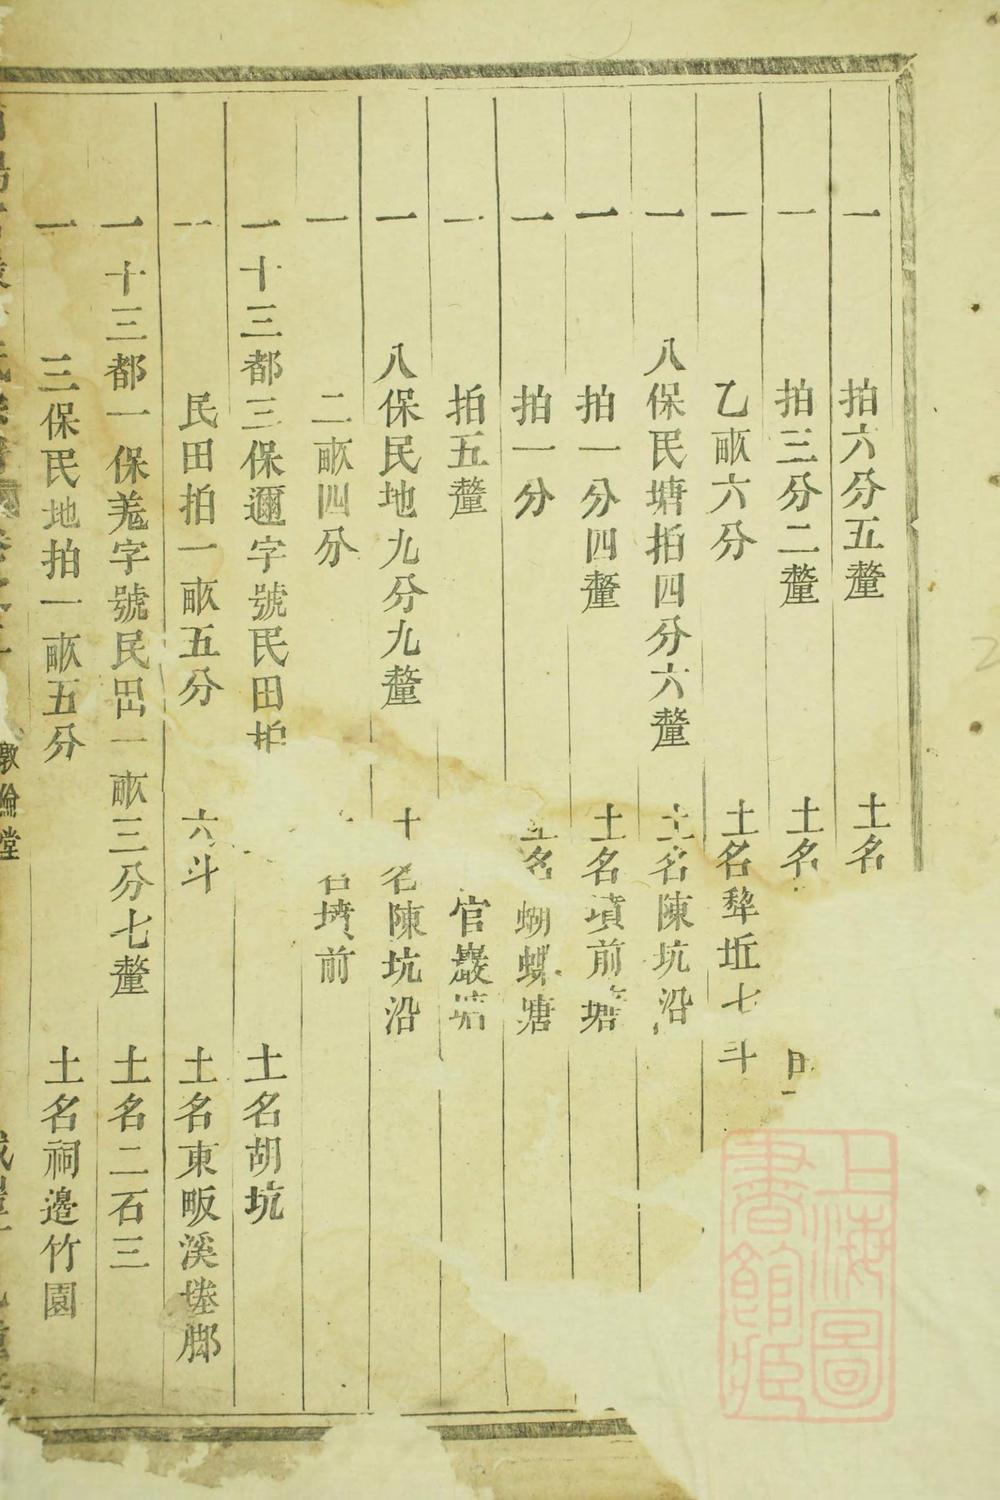 一 拍六分五釐 土名
一 拍三分二釐 土名
一 乙畝六分 土名犂坵七斗
一 八保民塘拍四分六釐 土名陳坑沿
一 拍一分四釐 土名墳前塘
一 拍一分 土名蝴蝶塘
一 拍五釐 官巖塘
一 八保民地九分九釐 土名陳坑沿
一 二畝四分 名墳前
一 十三都三保邇字號民田拍 土名胡坑
一 民田拍一畝五分 六斗 土名東畈溪塍脚
一 十三都一保羌字號民田一畝三分七釐 土名二石三
一 三保民地拍一畝五分 土名祠邉竹園
敦倫堂
上海圖書館藏